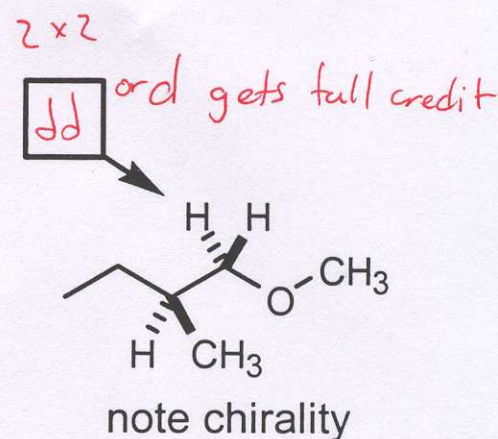 2 x 2
dd or d gets full credit
H H
O CH3
H CH3
note chirality